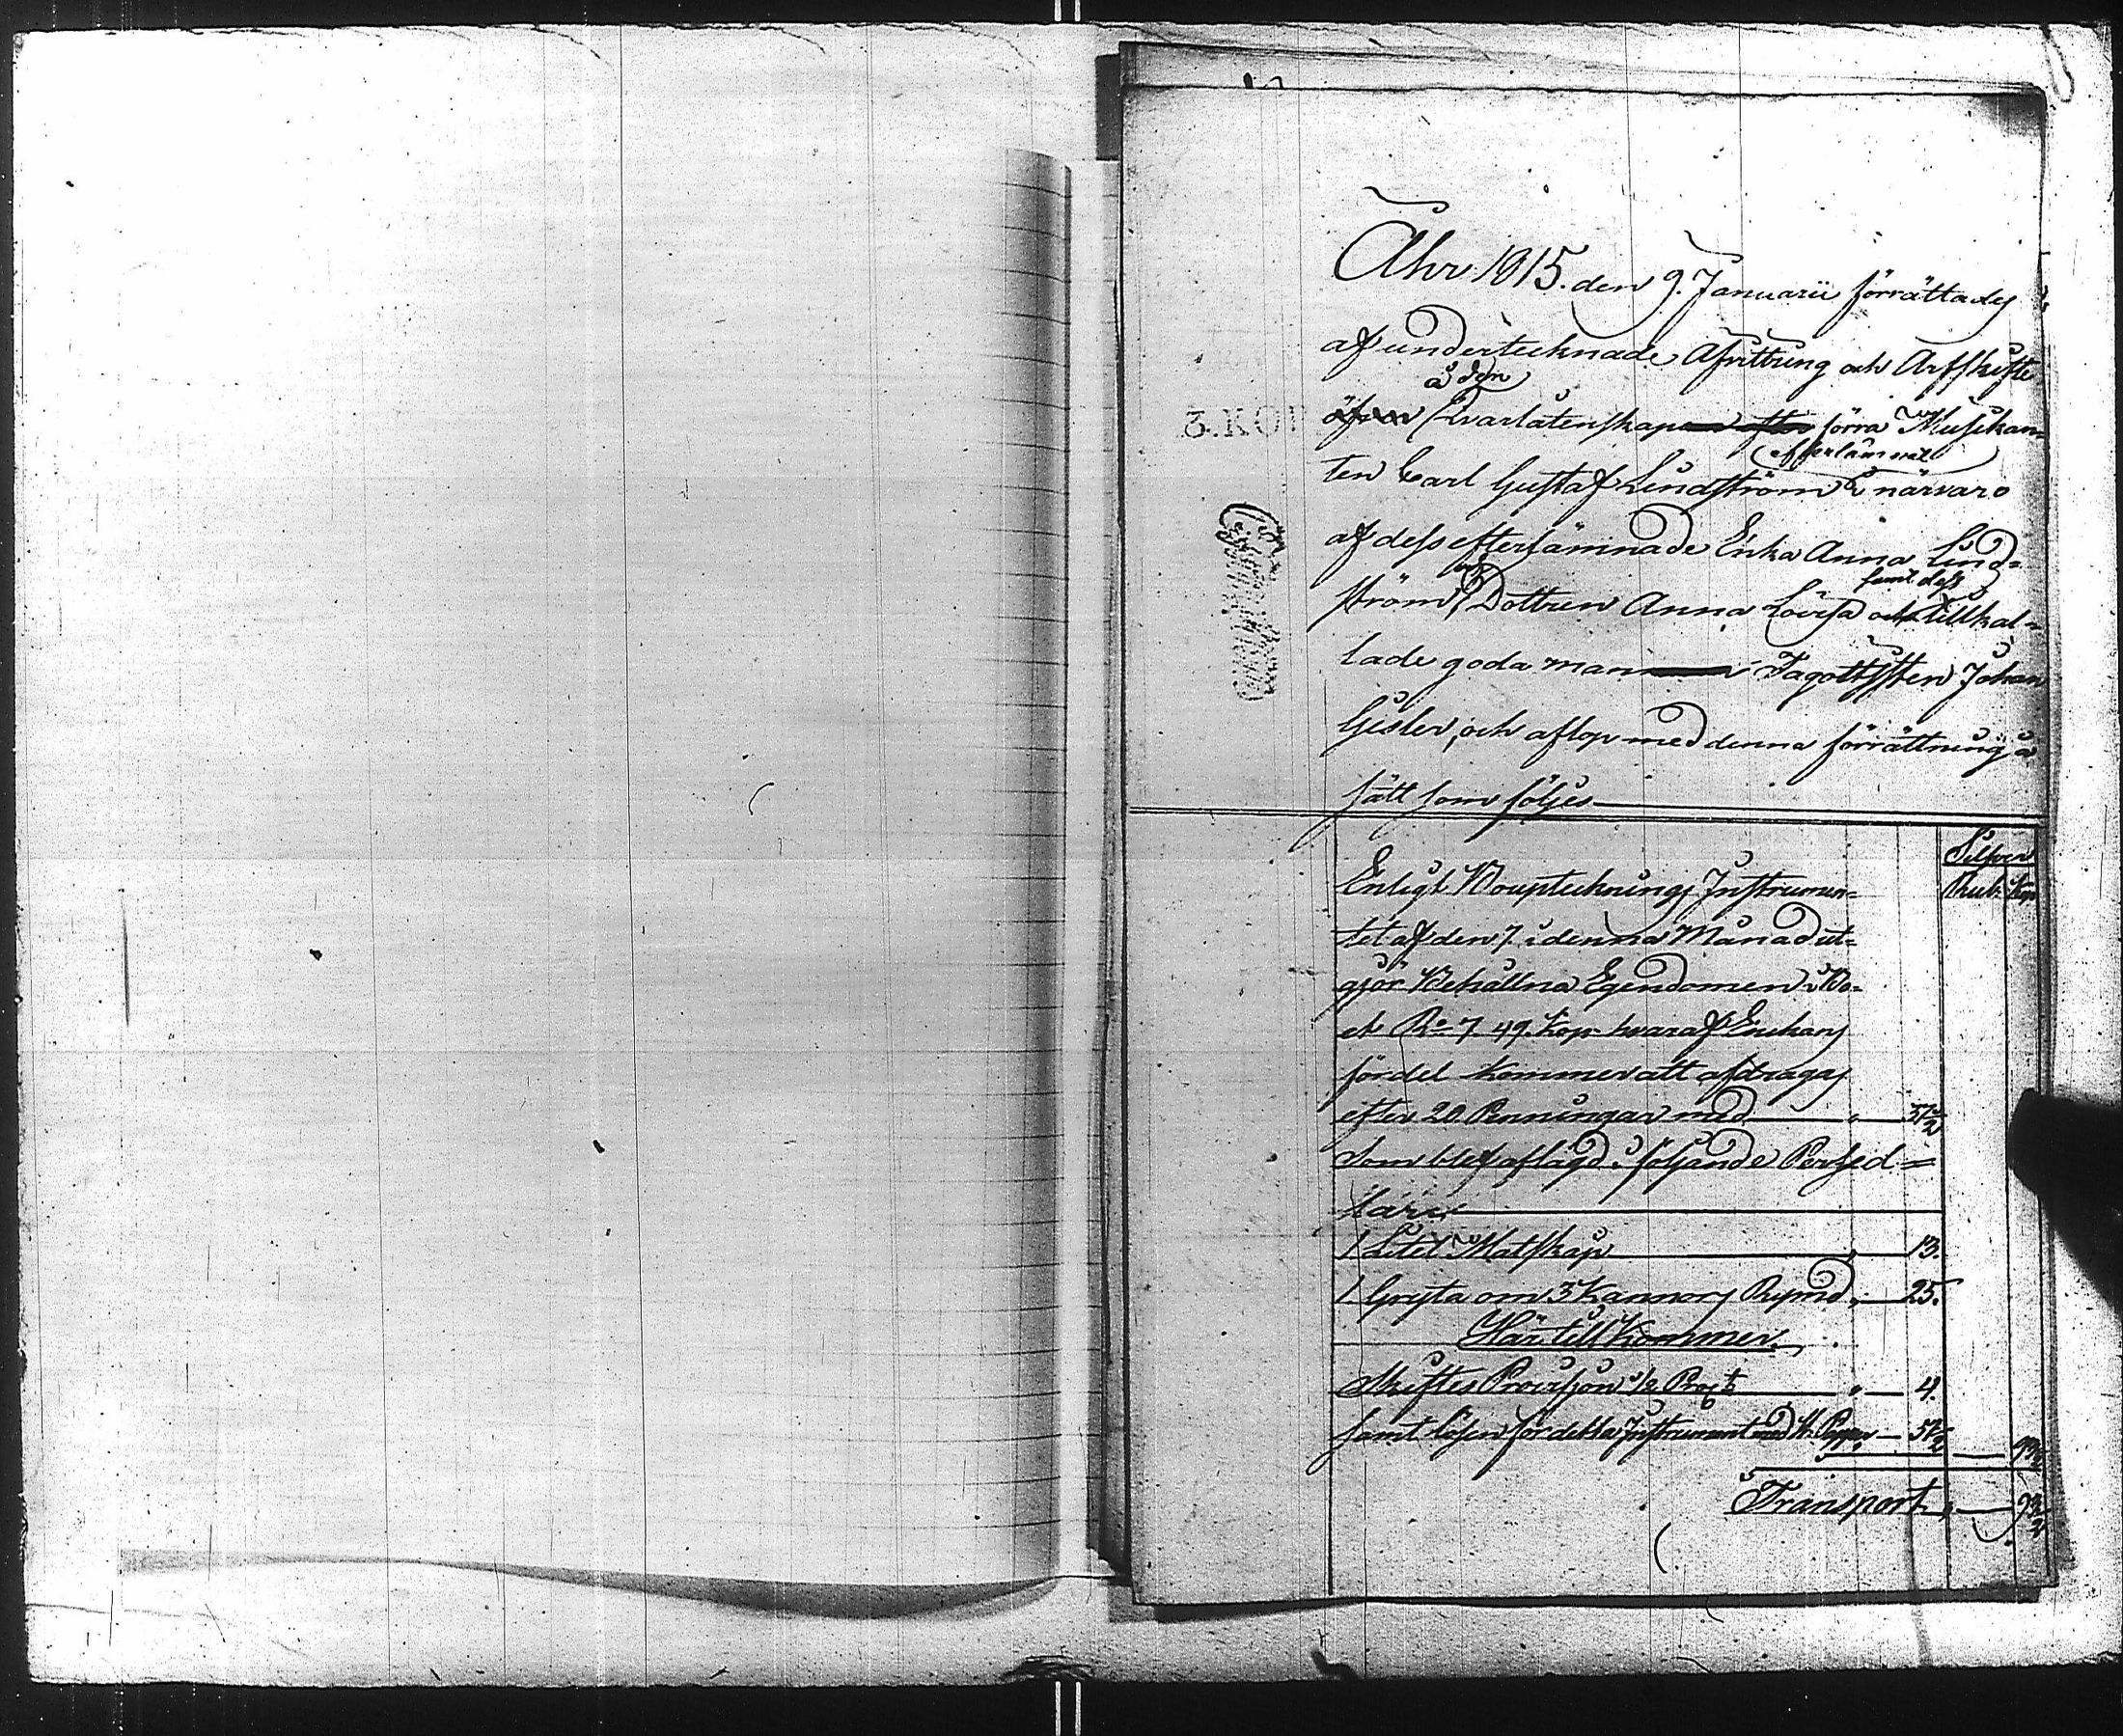 Åhr 1815. den 9. Januarii förrättades
af undertecknade Afvittring och Arfskifte
å den
öfver Qvarlåtenskapen efter förra Musikan-
efterlämnat
ten Carl Gustaf Lindström i närvaro
af dess efterlämnade Enka Anna Lind-
samt dess
ström, Dottren Anna Lovisa och tillkal-
lade goda man Fagottisten Johan
Gisler, och aflop med denna förrättning å
sätt som följer
Silfver
Rub. Kop
Enligt Bouptecknings Instrumen-
tet af den 7. i denna Månad ut-
gjör Behållna Egendomen i Bo-
et Ro 7. 49. Kop. hvaraf Enkans
fördel kommer att afdragas
efter 20 Penningar med " 37½
Som blef aflagd i följande Persed-
lar:
1 Litet Matskåp " 13.
1 Gryta om 3 Kannors Rymd " 25.
Härtill Kommer.
Skiftes Provision ½ Proct " 4.
samt lösen för detta Instrument med St. Papper 51½ 93½
Transport " 93½
3. KOP